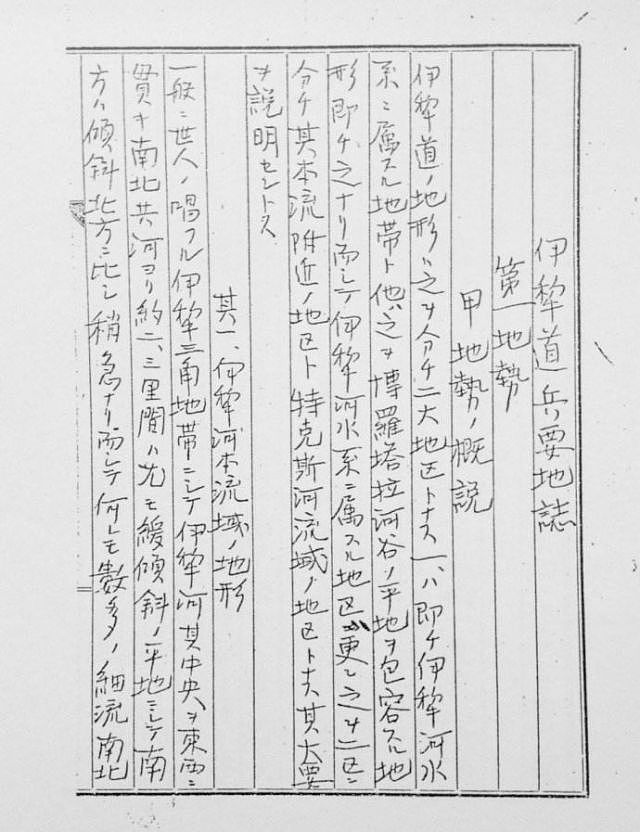 伊犂道兵要地誌
第一地勢
甲地勢ノ概説
伊犂道ノ地形ハ之ヲ分チ二大地区トナス一ハ即チ伊犂河水
系ニ属スル地帯ト他ハ之ヲ博羅塔拉河谷ノ平地ヲ包容スル地
形即チ之ナリ而シテ伊犂河水系ニ属スル地区ハ更ニ之ヲ二区ニ
分チ其本流附近ノ地区ト特克斯河流域ノ地区トナス其大要
ヲ説明セントス
其一、伊犂河本流域ノ地形
一般ニ世人ノ唱フル伊犂三角地帯ニシテ伊犂河其中央ヲ東西ニ
貫キ南北共河ヨリ約二、三里間ハ尤モ緩傾斜ノ平地ニシテ南
方ハ傾斜北方ニ比シ稍急ナリ而シテ何レモ数多ノ細流南北